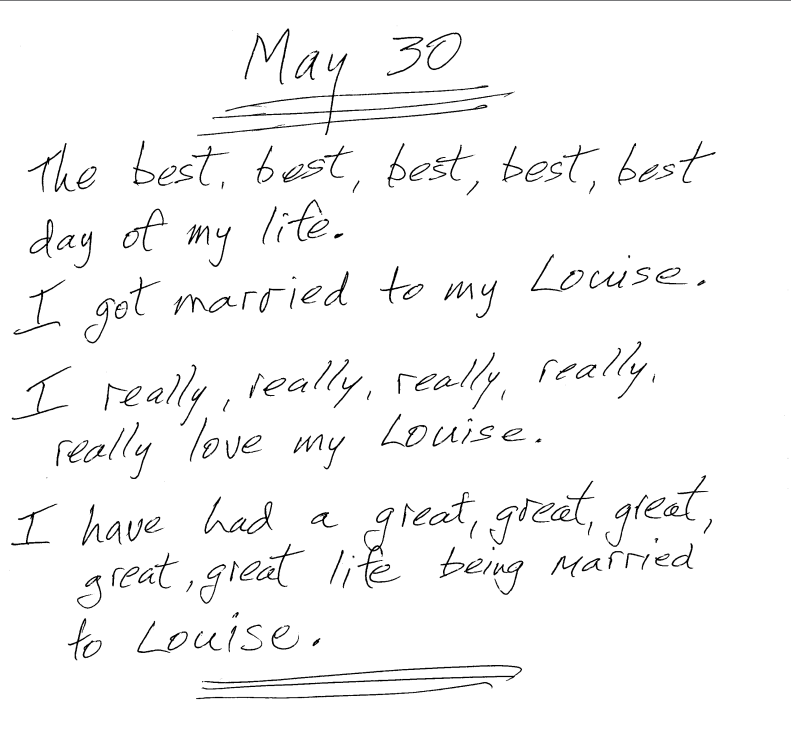 May 30
The best, best, best, best, best
day of my life.
I got married to my Louise.
I really, really, really, really,
really love my Louise.
I have had a great, great, great,
great, great life being married
to Louise.